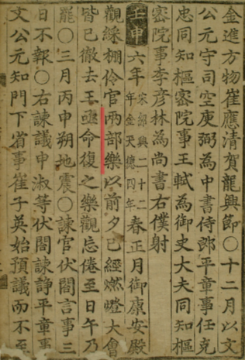 金進方物崔應淸賀龍興節○十二月以文
公元守司空庾弼爲中書侍郞平章事任克
忠同知樞密院事王軾爲御史大夫同知樞
密院事李彦林爲尙書右僕射
壬申六年宋紹興二十二年金天德四年春正月御康安殿
觀綵棚伶官兩部樂以前夕已經燃燈大會
皆已徹去王亟命復之樂觀忘倦至日午乃
罷○三月丙申朔地震○諫官伏閤言事三
日不報○右諫議申淑等伏閤諫諍平章事
文公元知門下省事崔子英始預議而不至